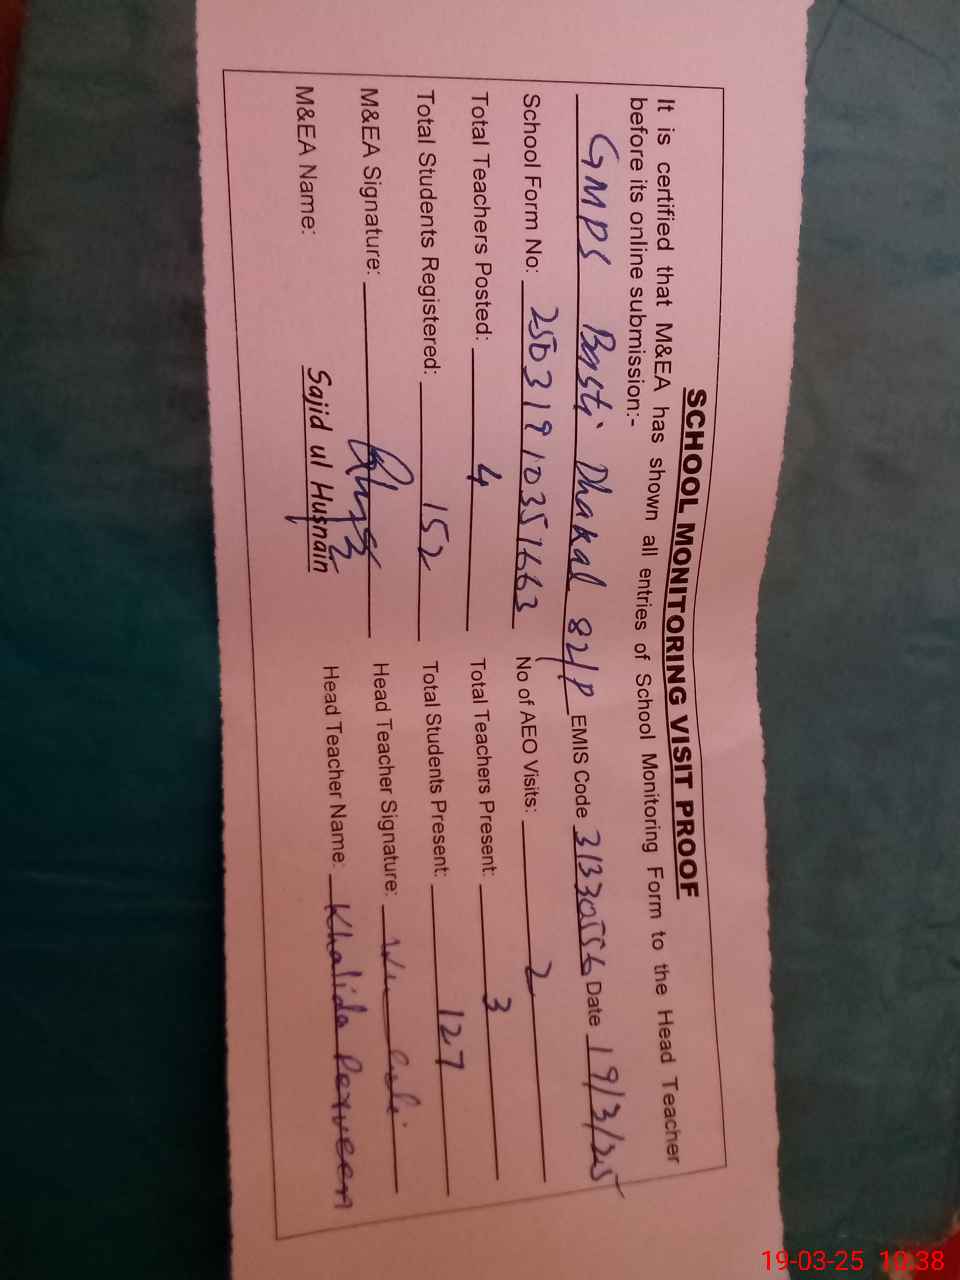 SCHOOL MONITORING VISIT PROOF
It is certified that M&EA has shown all entries of School Monitoring Form to the Head Teacher
before its online submission:-
GMPS Basti Dhakal 82/P EMIS Code 31330556 Date 19/3/25
School Form No: 25031910351663 No of AEO Visits: 2
Total Teachers Posted: 4 Total Teachers Present: 3
Total Students Registered: 152 Total Students Present: 127
M&EA Signature: Head Teacher Signature:
M&EA Name: Sajid ul Husnain Head Teacher Name: Khalida Perveen
19-03-25 10:38